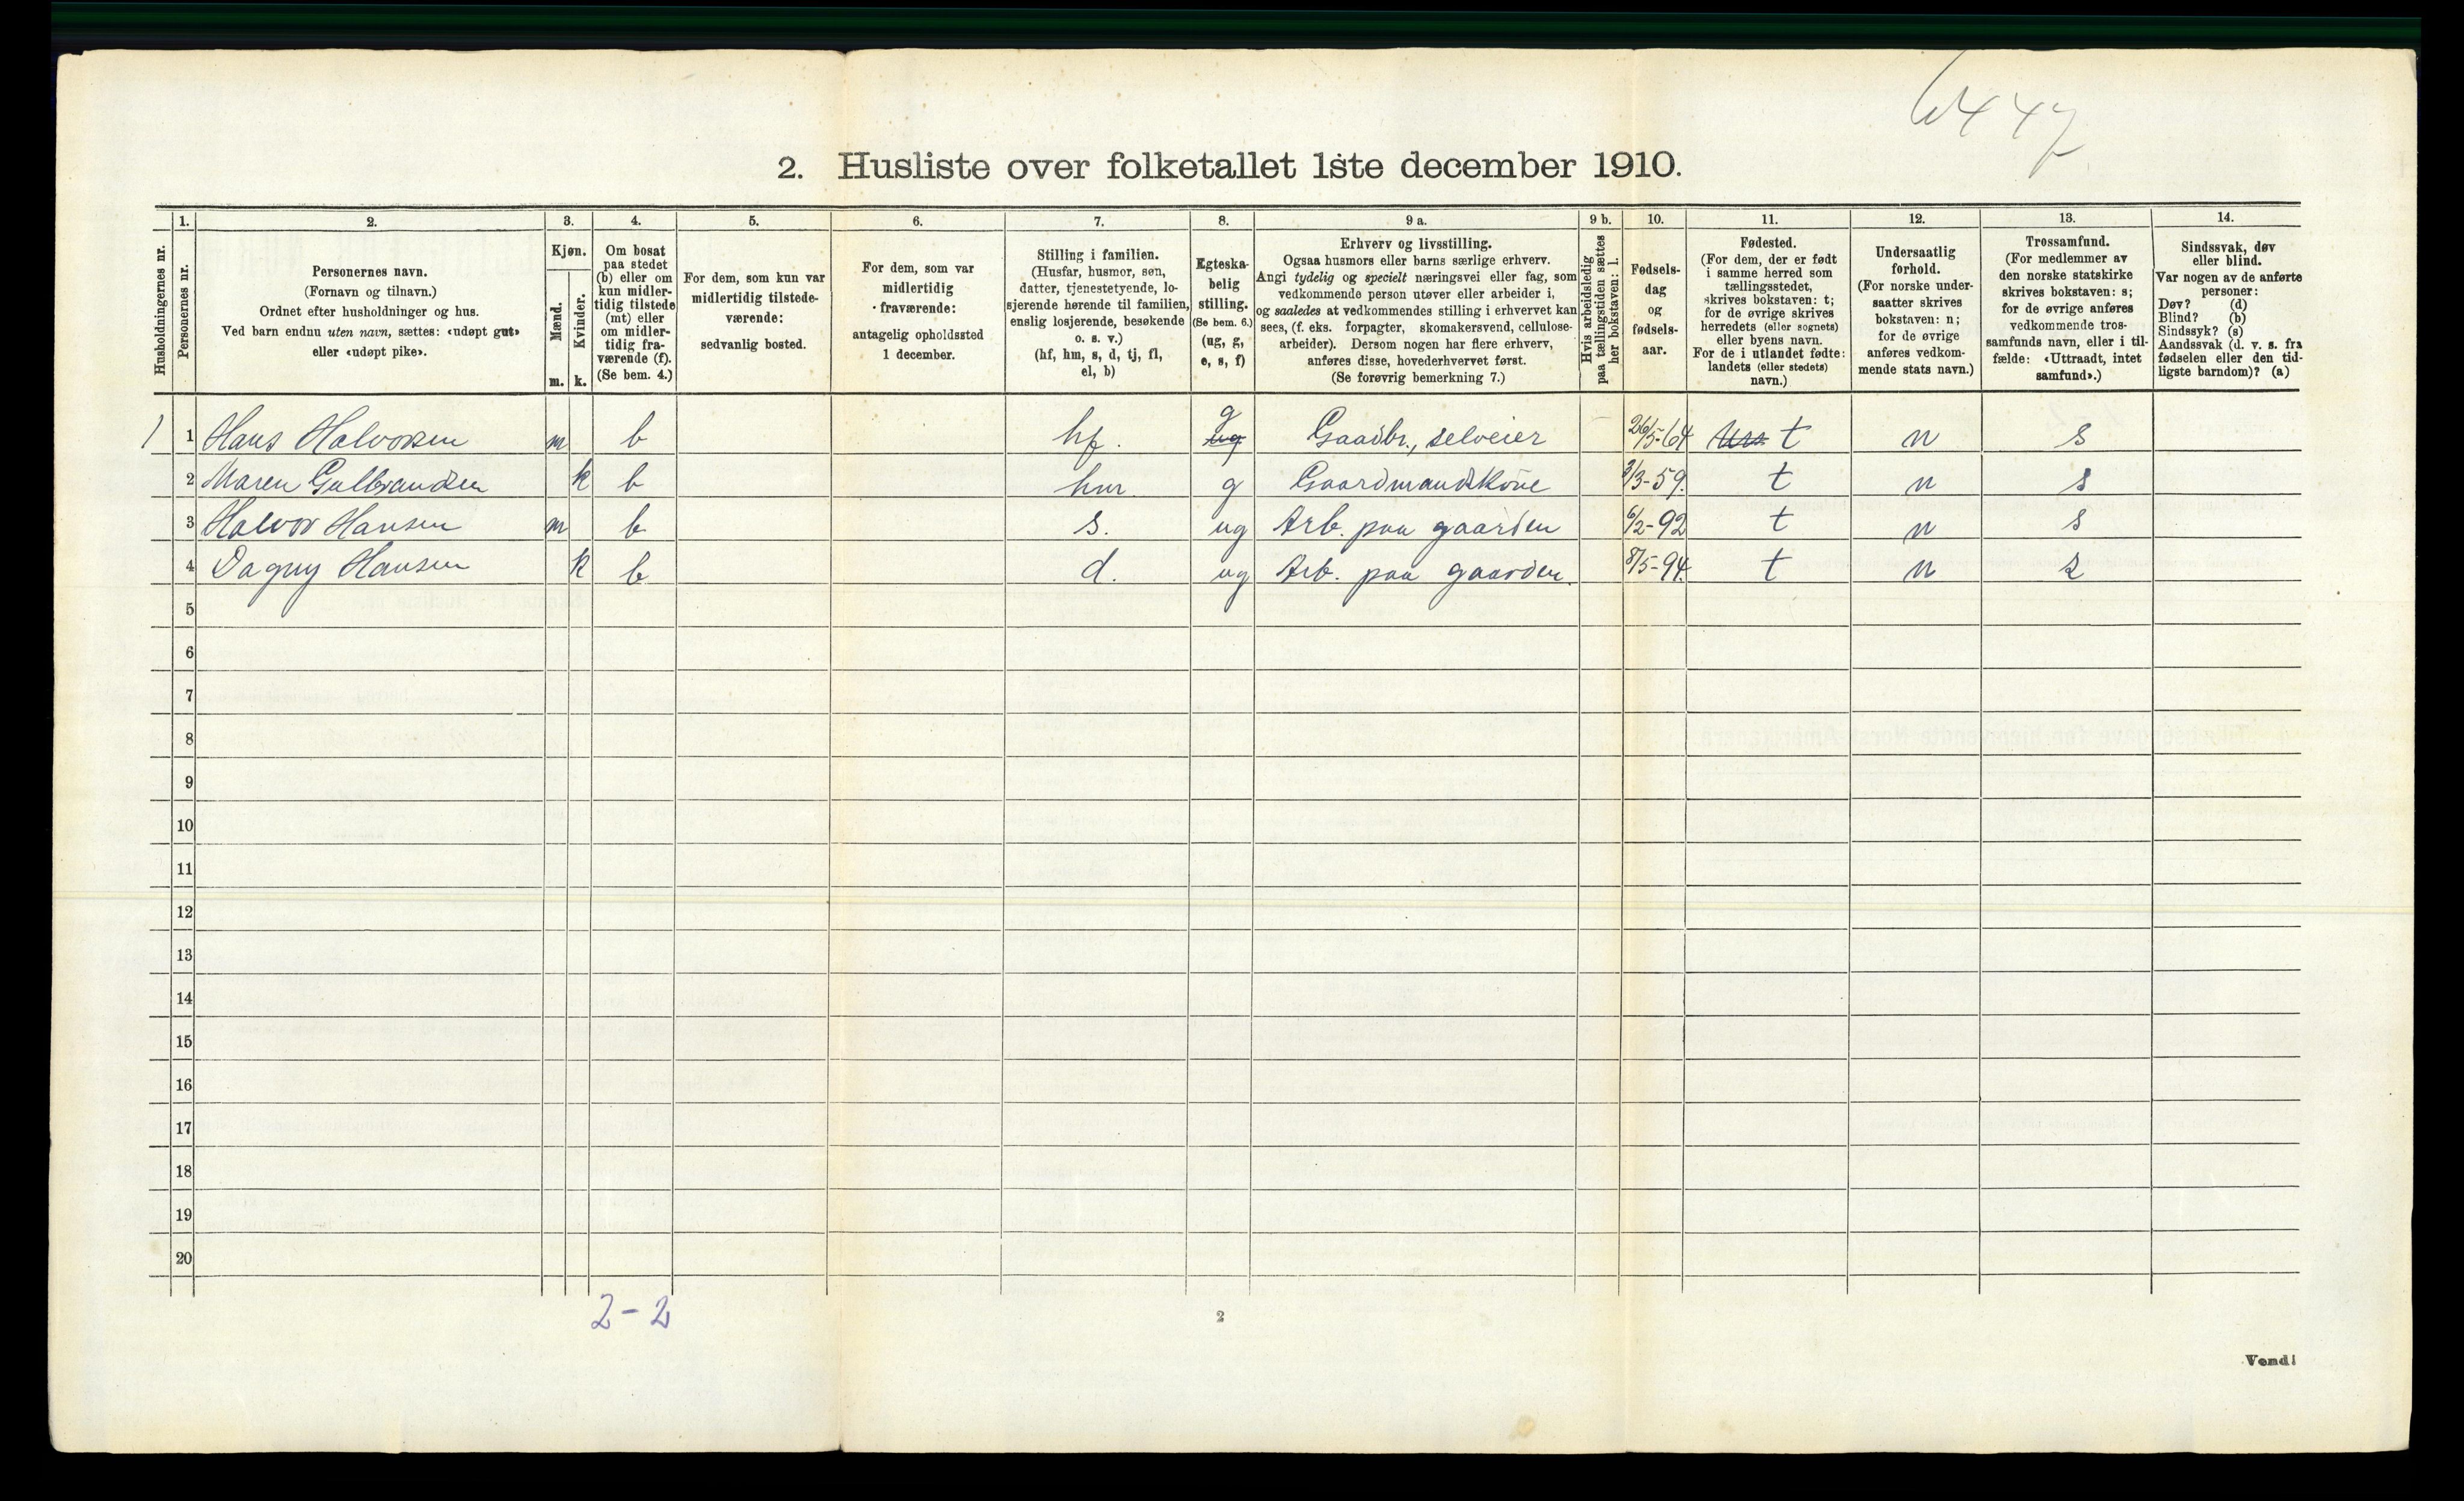 6447
2. Husliste over folketallet 1ste december 1910.
Husholdningernes nr.
1.
Personernes nr.
2.
Personernes navn.
(Fornavn og tilnavn.)
Ordnet efter husholdninger og hus.
Ved barn endnu uten navn, sættes: «udøpt gut»
eller «udøpt pike».
3.
Kjøn.
Mænd.
Kvinder.
m. k.
4.
Om bosat
paa stedet
(b) eller om
kun midler-
tidig tilstede
(mt) eller
om midler-
tidig fra-
værende (f).
(Se bem. 4.)
5.
For dem, som kun var
midlertidig tilstede-
værende:
sedvanlig bosted.
6.
For dem, som var
midlertidig
fraværende:
antagelig opholdssted
1 december.
7.
Stilling i familien.
(Husfar, husmor, søn,
datter, tjenestetyende, lo-
sjerende hørende til familien,
enslig losjerende, besøkende
o. s. v.)
(hf, hm, s, d, tj, fl,
el, b)
8.
Egteska-
belig
stilling.
(Se bem. 6.)
(ug, g,
e, s, f)
9 a.
Erhverv og livsstilling.
Ogsaa husmors eller barns særlige erhverv.
Angi tydelig og specielt næringsvei eller fag, som
vedkommende person utøver eller arbeider i,
og saaledes at vedkommendes stilling i erhvervet kan
sees, (f. eks. forpagter, skomakersvend, cellulose-
arbeider). Dersom nogen har flere erhverv,
anføres disse, hovederhvervet først.
(Se forøvrig bemerkning 7.)
9 b.
Hvis arbeidsledig
paa tællingstiden sættes
her bokstaven: l.
10.
Fødsels-
dag
og
fødsels-
aar.
11.
Fødested.
(For dem, der er født
i samme herred som
tællingsstedet,
skrives bokstaven: t;
for de øvrige skrives
herredets (eller sognets)
eller byens navn.
For de i utlandet fødte:
landets (eller stedets)
navn.)
12.
Undersaatlig
forhold.
(For norske under-
saatter skrives
bokstaven: n;
for de øvrige
anføres vedkom-
mende stats navn.)
13.
Trossamfund.
(For medlemmer av
den norske statskirke
skrives bokstaven: s;
for de øvrige anføres
vedkommende tros-
samfunds navn, eller i til-
fælde: «Uttraadt, intet
samfund».)
14.
Sindssvak, døv
eller blind.
Var nogen av de anførte
personer:
Døv? (d)
Blind? (b)
Sindssyk? (s)
Aandssvak (d. v. s. fra
fødselen eller den tid-
ligste barndom)? (a)
1 1 Hans Halvorsen m b hf. ug g Gaadbr., selveier 26/5-64 t n s
2 Maren Gulbrandsen k b hm. g Gaardmandskone 3/3-59. t n s
3 Halvor Hansen m b s. ug Arb. paa gaarden 6/2-92 t n s
4 Dagny Hansen k b d. ug Arb. paa gaarden. 8/5-94. t n s
5
6
7
8
9
10
11
12
13
14
15
16
17
18
19
20
2-2
2
Vend!